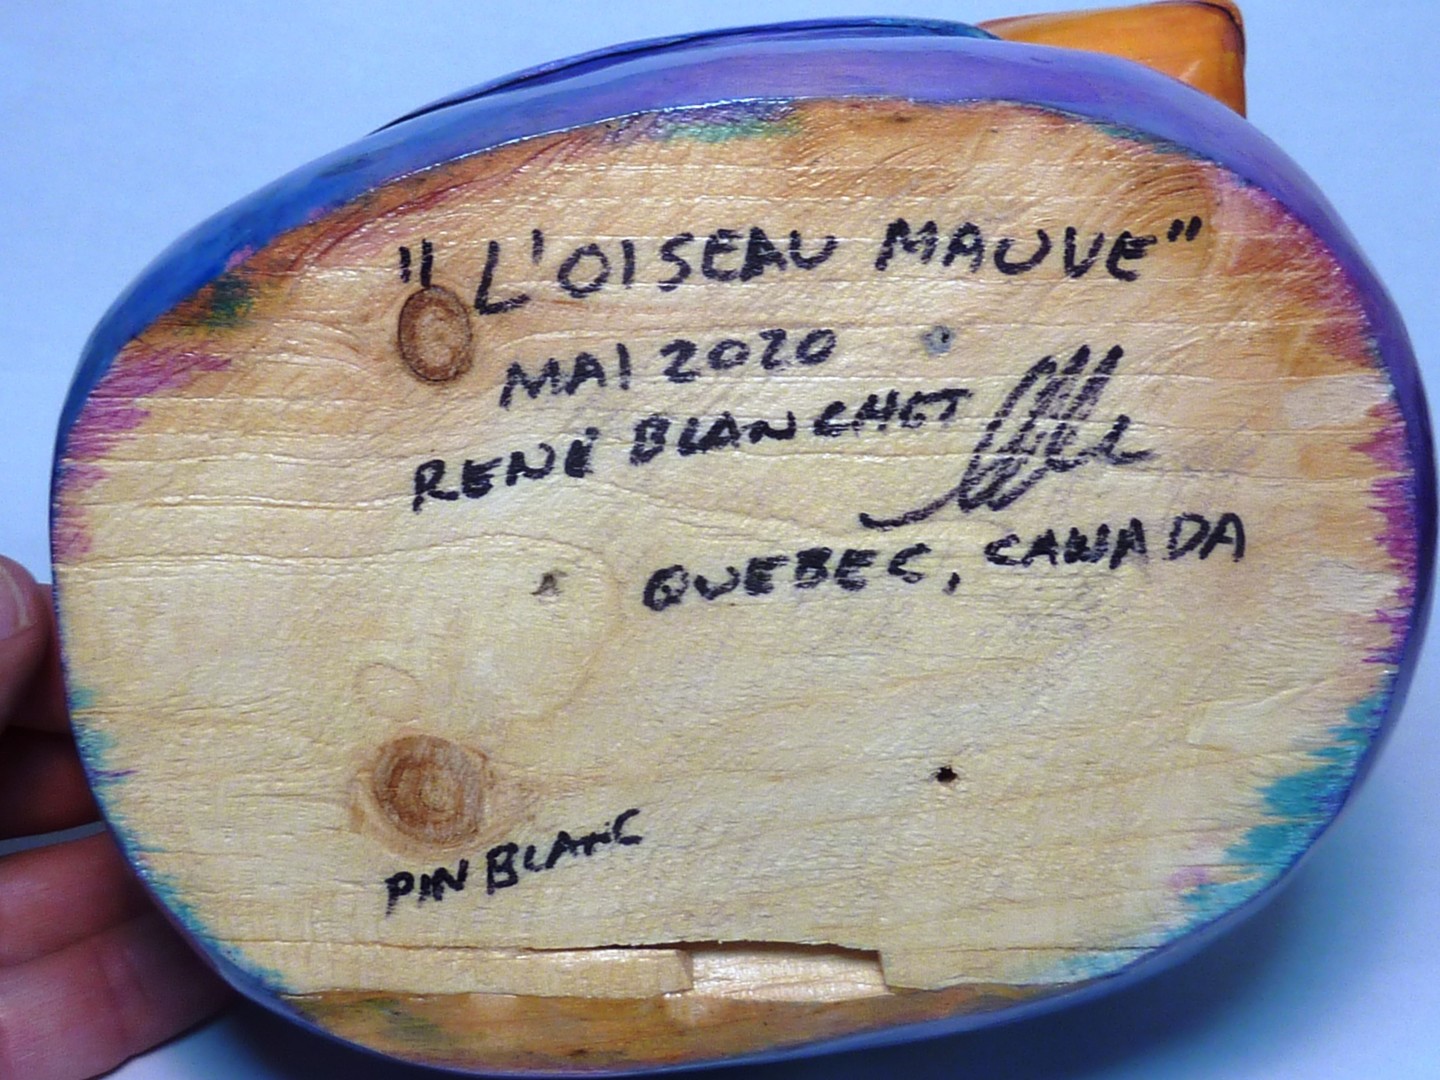 "L'OISEAU MAUVE"
MAI 2020
RENÉ BLANCHET
QUEBEC, CANADA
PIN BLANC